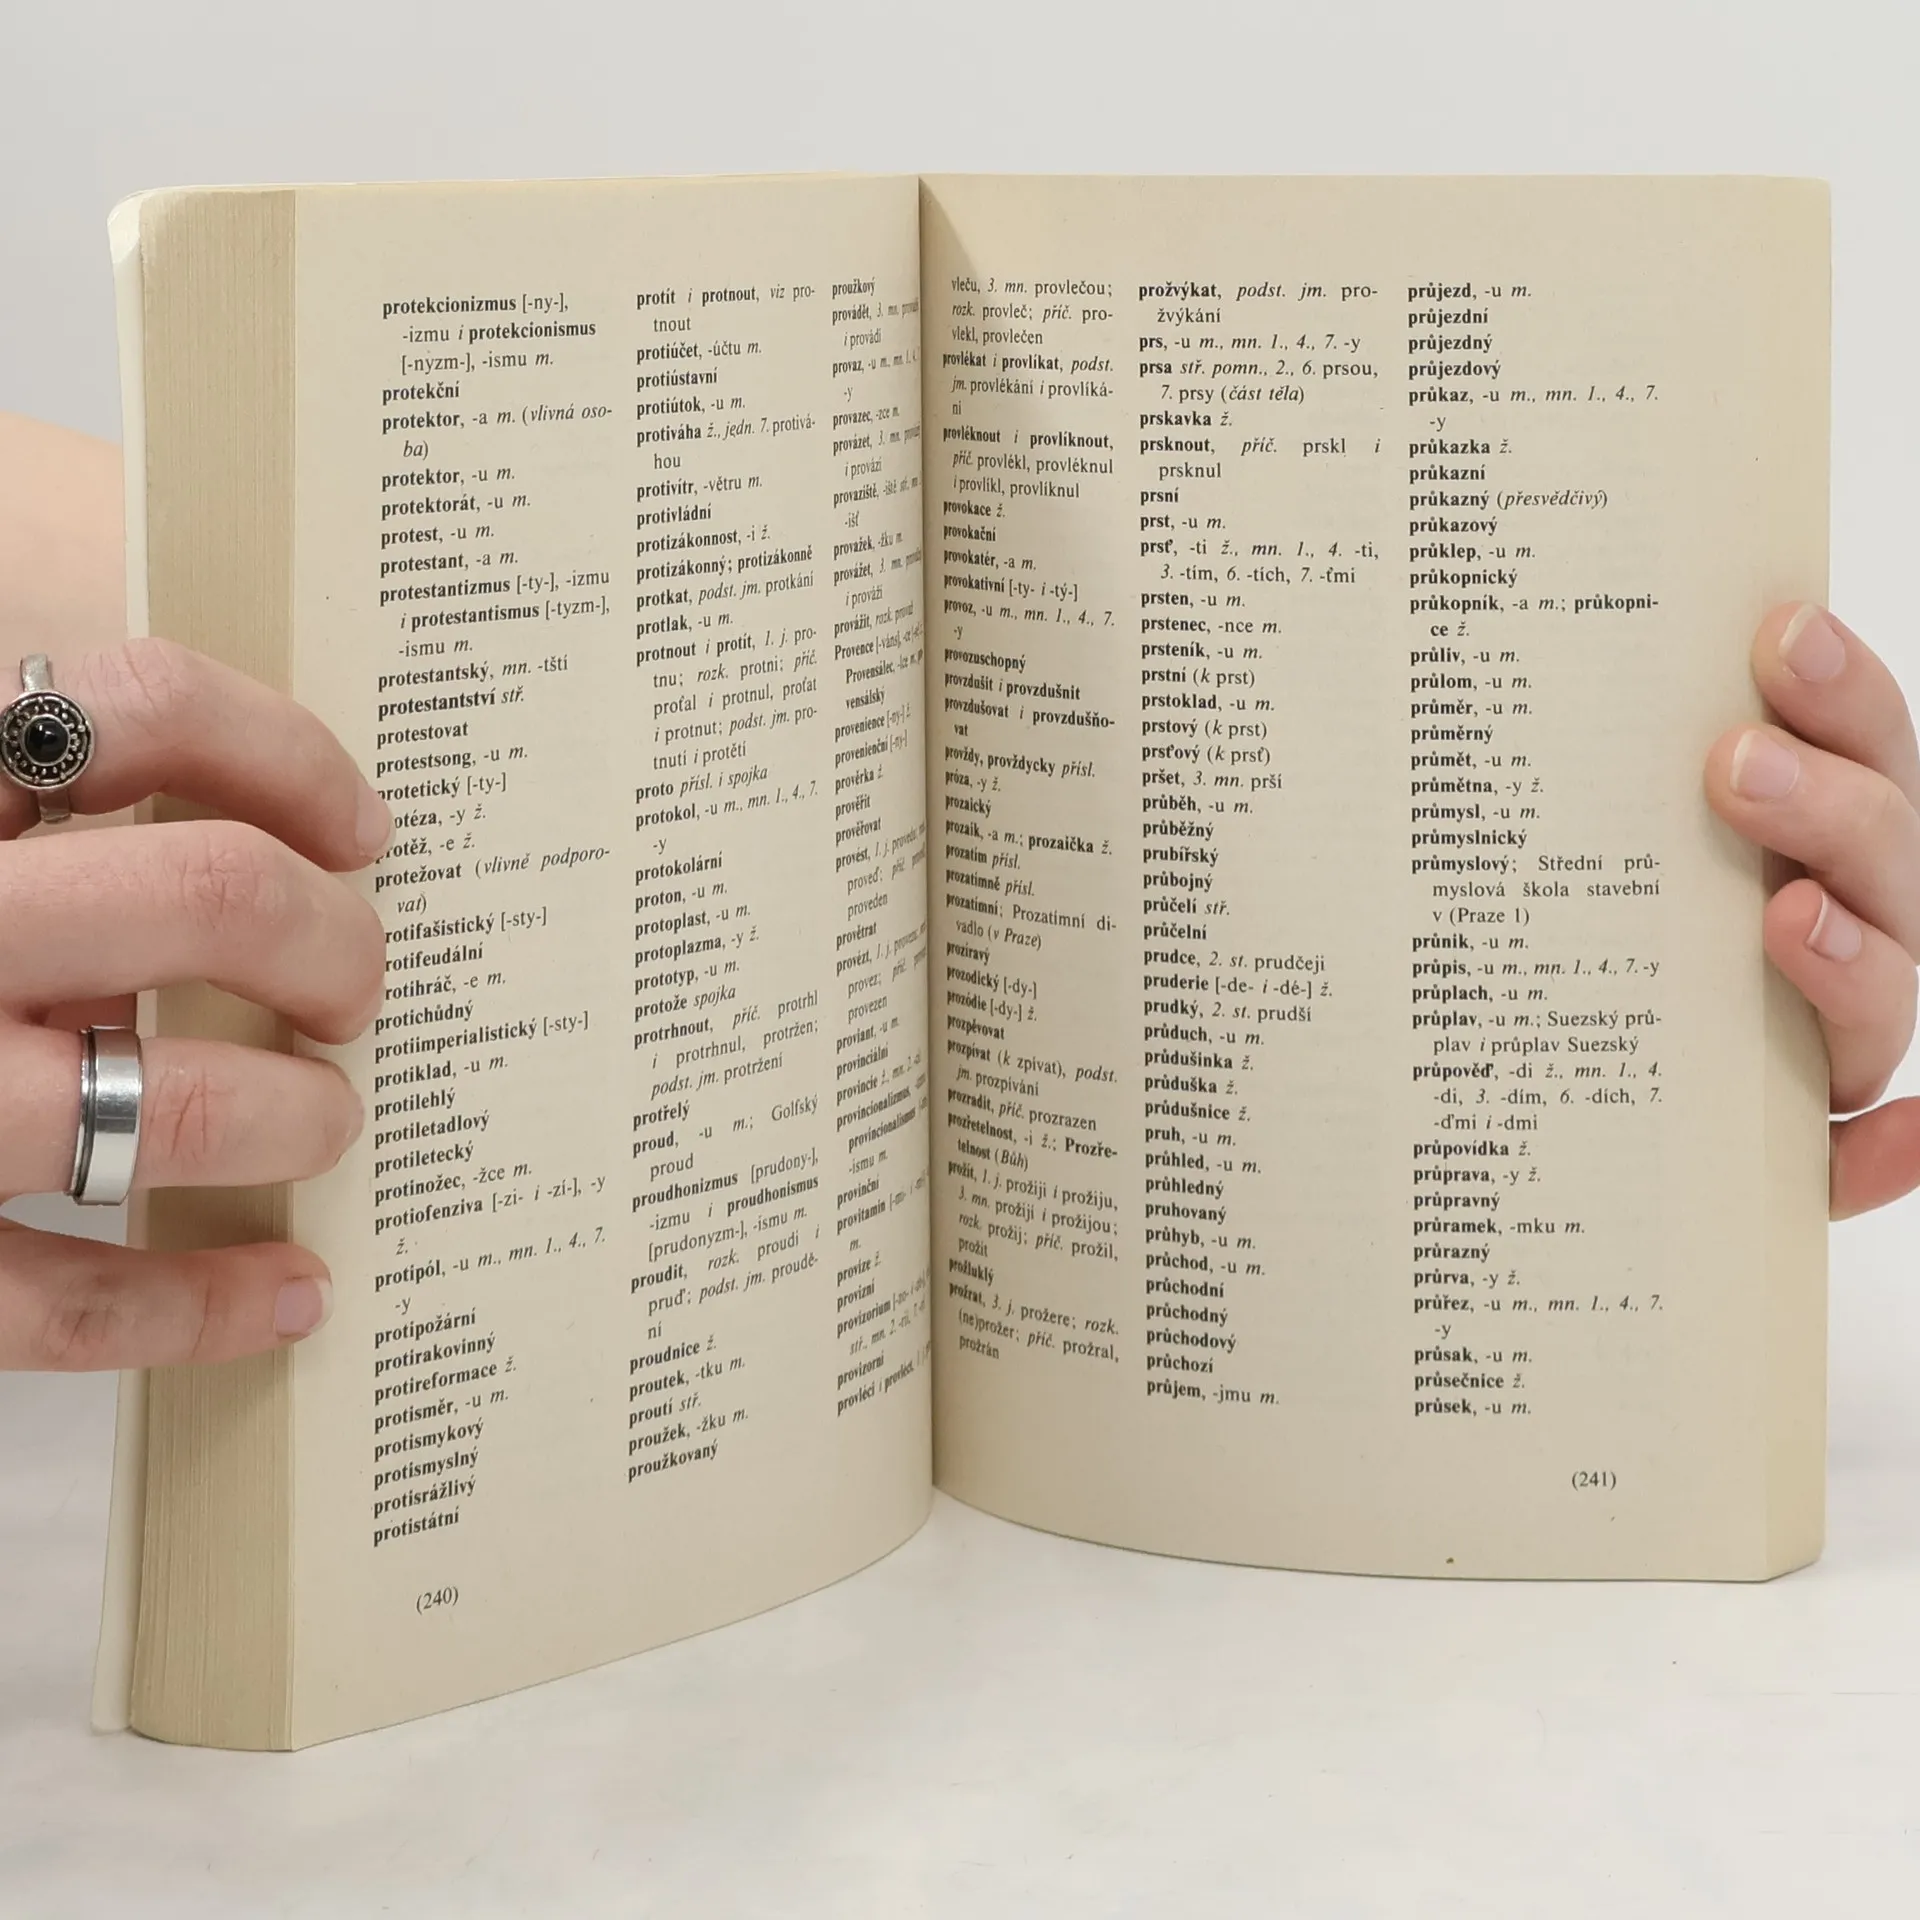 protekcionizmus [-ny-],
-izmu i protekcionismus
[-nyzm-], -ismu m.
protekční
protektor, -a m. (vlivná oso-
ba)
protektor, -u m.
protektorát, -u m.
protest, -u m.
protestant, -a m.
protestantizmus [-ty-], -izmu
i protestantismus [-tyzm-],
-ismu m.
protestantský, mn. -tští
protestantství stř.
protestovat
protestsong, -u m.
rotetický [-ty-]
otéza, -y ž.
rotěž, -e ž.
protežovat (vlivně podporo-
vat)
rotifašistický [-sty-]
rotifeudální
rotihráč, -e m.
protichůdný
protiimperialistický [-sty-]
protiklad, -u m.
protilehlý
protiletadlový
protiletecký
protinožec, -žce m.
protiofenziva [-zi- i -zí-], -y
ž.
protipól, -u m., mn. 1., 4., 7.
-y
protipožární
protirakovinný
protireformace ž.
protisměr, -u m.
protismykový
protismyslný
protisrážlivý
protistátní
(240)
protít i protnout, viz pro-
tnout
protiúčet, -účtu m.
protiústavní
protiútok, -u m.
protiváha ž., jedn. 7. protivá-
hou
protivítr, -větru m.
protivládní
protizákonnost, -i ž.
protizákonný; protizákonně
protkat, podst. jm. protkání
protlak, -u m.
protnout i protít, 1. j. pro-
tnu; rozk. protni; příč.
proťal i protnul, proťat
i protnut; podst. jm. pro-
tnutí i protětí
proto přísl. i spojka
protokol, -u m., mn. 1., 4., 7.
-y
protokolární
proton, -u m.
protoplast, -u m.
protoplazma, -y ž.
prototyp, -u m.
protože spojka
protrhnout, příč. protrhl
i protrhnul, protržen;
podst. jm. protržení
protřelý
proud, -u m.; Golfský
proud
proudhonizmus [prudony-],
-izmu i proudhonismus
[prudonyzm-], -ismu m.
proudit, rozk. proudi i
pruď; podst. jm. proudě-
ní
proudnice ž.
proutek, -tku m.
proutí stř.
proužek, -žku m.
proužkovaný
proužkový
provádět, 3. mn.
i provádí
provaz, -u m., mn. 1., 4.
-y
provazec, -zce m.
provázet, 3. mn.
i provází
provaziště, -iště stř., mn.
-išť
provažek, -žku m.
provážet, 3. mn.
i prováží
provážit, rozk.
Provence
Provensálec, -lce m.
vensálský
provenience [-ny-] ž.
provenienční [-ny-]
prověrka ž.
prověřit
prověřovat
provést, 1. j. provedu;
proveď; příč.
proveden
provětrat
provézt, 1. j.
provez; příč.
provezen
proviant, -u m.
provinciální
provincie ž., mn. 2.
provincionalizmus,
provincionalismus
-ismu m.
provinční
provitamin
m.
provize ž.
provizní
provizorium
stř., mn. 2.
provizorní
provléci i provléct, 1. j.
vleču, 3. mn. provlečou;
rozk. provleč; příč. pro-
vlekl, provlečen
provlékat i provlíkat, podst.
jm. provlékání i provlíká-
ní
provléknout i provlíknout,
příč. provlékl, provléknul
i provlíkl, provlíknul
provokace ž.
provokační
provokatér, -a m.
provokativní [-ty- i -tý-]
provoz, -u m., mn. 1., 4., 7.
-y
provozuschopný
provzdušit i provzdušnit
provzdušovat i provzdušňo-
vat
provždy, provždycky přísl.
próza, -y ž.
prozaický
prozaik, -a m.; prozaička ž.
prozatím přísl.
prozatímně přísl.
prozatímní; Prozatímní di-
vadlo (v Praze)
prozíravý
prozodický [-dy-]
prozódie [-dy-] ž.
prozpěvovat
prozpívat (k zpívat), podst.
jm. prozpívání
prozradit, příč. prozrazen
prozřetelnost, -i ž.; Prozře-
telnost (Bůh)
prožít, 1. j. prožiji i prožiju,
3. mn. prožijí i prožijou;
rozk. prožij; příč. prožil,
prožit
prožluklý
prožrat, 3. j. prožere; rozk.
(ne)prožer; příč. prožral,
prožrán
prožvýkat, podst. jm. pro-
žvýkání
prs, -u m., mn. 1., 4., 7. -y
prsa stř. pomn., 2., 6. prsou,
7. prsy (část těla)
prskavka ž.
prsknout, příč. prskl i
prsknul
prsní
prst, -u m.
prsť, -ti ž., mn. 1., 4. -ti,
3. -tím, 6. -tích, 7. -ťmi
prsten, -u m.
prstenec, -nce m.
prsteník, -u m.
prstní (k prst)
prstoklad, -u m.
prstový (k prst)
prsťový (k prsť)
pršet, 3. mn. prší
průběh, -u m.
průběžný
prubířský
průbojný
průčelí stř.
průčelní
prudce, 2. st. prudčeji
pruderie [-de- i -dé-] ž.
prudký, 2. st. prudší
průduch, -u m.
průdušinka ž.
průduška ž.
průdušnice ž.
pruh, -u m.
průhled, -u m.
průhledný
pruhovaný
průhyb, -u m.
průchod, -u m.
průchodní
průchodný
průchodový
průchozí
průjem, -jmu m.
průjezd, -u m.
průjezdní
průjezdný
průjezdový
průkaz, -u m., mn. 1., 4., 7.
-y
průkazka ž.
průkazní
průkazný (přesvědčivý)
průkazový
průklep, -u m.
průkopnický
průkopník, -a m.; průkopni-
ce ž.
průliv, -u m.
průlom, -u m.
průměr, -u m.
průměrný
průmět, -u m.
průmětna, -y ž.
průmysl, -u m.
průmyslnický
průmyslový; Střední prů-
myslová škola stavební
v (Praze 1)
průnik, -u m.
průpis, -u m., mn. 1., 4., 7. -y
průplach, -u m.
průplav, -u m.; Suezský prů-
plav i průplav Suezský
průpověď, -di ž., mn. 1., 4.
-di, 3. -dím, 6. -dích, 7.
-ďmi i -dmi
průpovídka ž.
průprava, -y ž.
průpravný
průramek, -mku m.
průrazný
průrva, -y ž.
průřez, -u m., mn. 1., 4., 7.
-y
průsak, -u m.
průsečnice ž.
průsek, -u m.
(241)